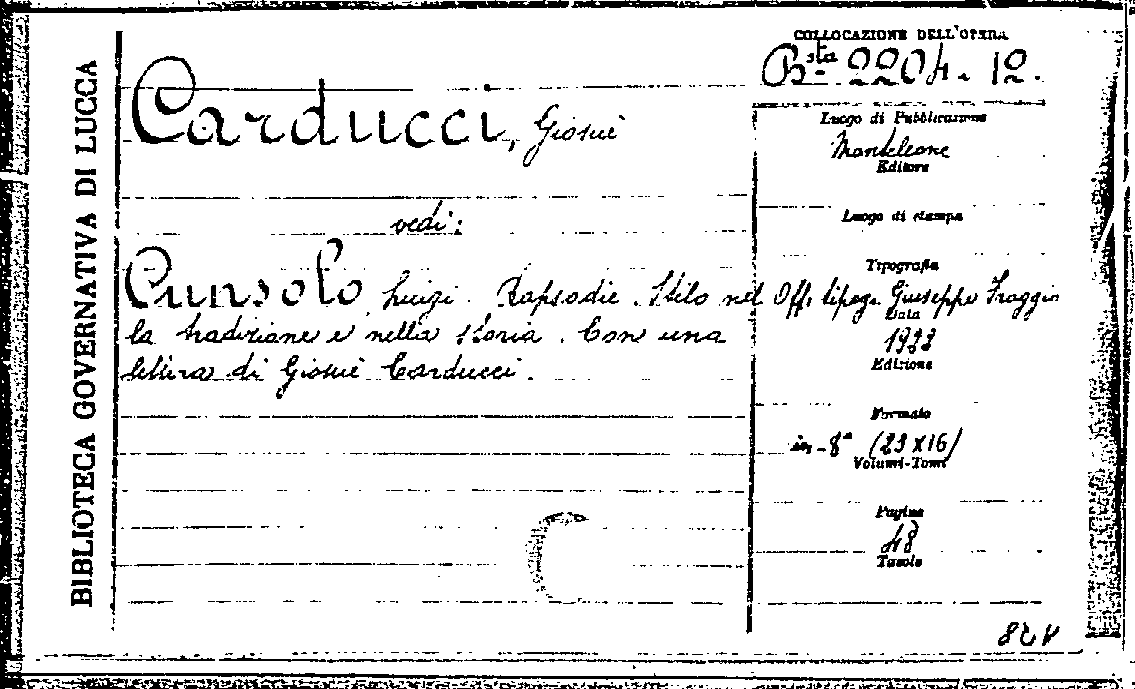 BIBLIOTECA GOVERNATIVA DI LUCCA
COLLOCAZIONE DELL'OPERA
Bsta 2204. 12.
Carducci, Giosuè
vedi:
Cunsolo Luigi. Rapsodie. Stilo nel
la tradizione e nella storia. Con una
lettera di Giosuè Carducci.
Luogo di Pubblicazione
Monteleone
Editore
Luogo di stampa
Tipografia
Off. tipogr. Giuseppe Froggio
Data
1922
Edizione
Formato
in-8° (23x16)
Volumi-Tomi
Pagine
48
Tavole